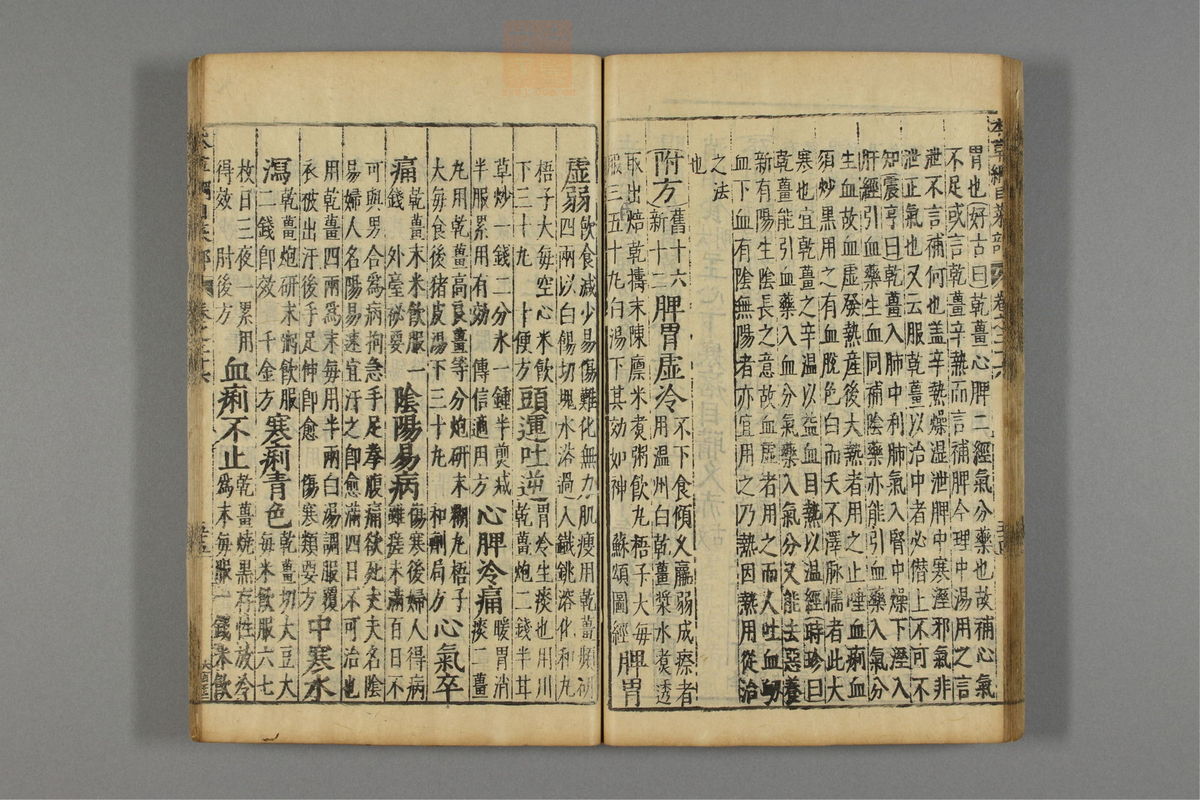 本草綱目菜部 卷之二十六
胃也好古曰乾薑心脾二經氣分藥也故補心氣
不足或言乾薑辛熱而言補脾今理中湯用之言
泄不言補何也蓋辛熱燥湿泄脾中寒溼邪氣非
泄正氣也又云服乾薑以治中者必僭上不可不
知震亨曰乾薑入肺中利肺氣入腎中燥下溼入
肝經引血藥生血同補陰藥亦能引血藥入氣分
生血故血虛發熱產後大熱者用之止唾血痢血
須炒黑用之有血脫色白而夭不澤脉濡者此大
寒也宜乾薑之辛温以益血目熱以温經時珍曰
乾薑能引血藥入血分氣藥入氣分又能去惡養
新有陽生陰長之意故血虛者用之而人吐血衂
血下血有陰無陽者亦宜用之乃熱因熱用從治
之法
也
附方舊十六新十二脾胃虛冷不下食傾乂羸弱成瘵者
用温州白乾薑漿水煮透
取出焙乾擣末陳廪米煮粥飲丸梧子大每
服三五十九白湯下其効如神 蘇頌圖經脾胃
虛弱飲食減少易傷難化無力肌瘦用乾薑頻研
四兩以白餳切塊水浴過入鐵銚溶化和九
梧子大每空心米飲
下三十九 十便方頭運吐逆胃冷生痰也用川
乾薑炮二錢半甘
草炒一錢二分水一鍾半煎減
半服累用有効 傳信適用方心脾冷痛暖胃消
痰二薑
丸用乾薑高良薑等分炮研末糊丸梧子
大每食後猪皮湯下三十九 和劑局方心氣卒
痛乾薑末米飲服一
錢 外臺秘要陰陽易病傷寒後婦人得病
雖瘥未滿百日不
可與男合爲病拘急手足拳腹痛欲死丈夫名陰
易婦人名陽易速宜汗之即愈滿四日不可治也
用乾薑四兩爲末每用半兩白湯調服覆
衣被出汗後手足伸即愈 傷寒類要方中寒水
瀉乾薑炮研末粥飲服
二錢即效 千金方寒痢青色乾薑切大豆大
每米飲服六七
枚日三夜一累用
得效 肘後方血痢不止乾薑燒黑存性放冷
爲末每服一錢米飲